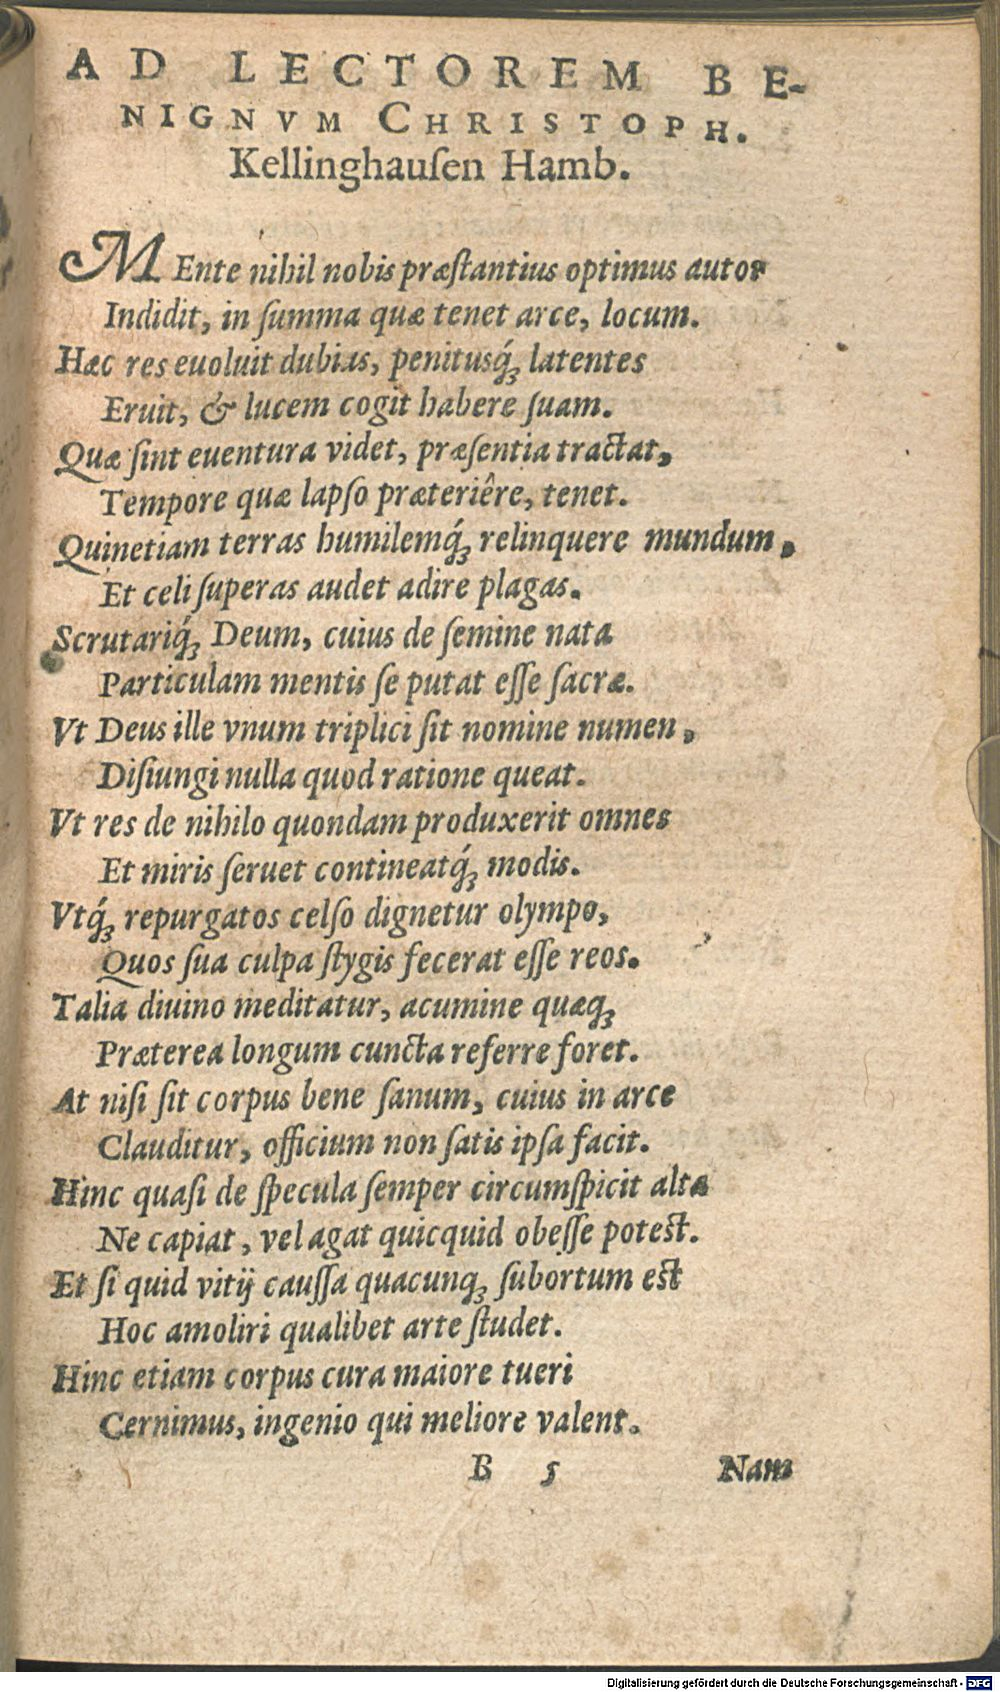 AD LECTOREM BE-
NIGNVM CHRISTOPH.
Kellinghauſen Hamb.
MEnte nihil nobis præſtantius optimus autor
Indidit, in ſumma quæ tenet arce, locum.
Hæc res euoluit dubias, penitusq́ꝫ latentes
Eruit, & lucem cogit habere ſuam.
Quæ ſint euentura videt, præſentia tractat,
Tempore quæ lapſo præteriêre, tenet.
Quinetiam terras humilemq́ꝫ relinquere mundum,
Et celi ſuperas audet adire plagas.
Scrutariq́ꝫ Deum, cuius de ſemine nata
Particulam mentis ſe putat eſſe ſacræ.
Vt Deus ille vnum triplici ſit nomine numen,
Diſiungi nulla quod ratione queat.
Vt res de nihilo quondam produxerit omnes
Et miris ſeruet contineatq́ꝫ modis.
Vtq́ꝫ repurgatos celſo dignetur olympo,
Quos ſua culpa ſtygis fecerat eſſe reos.
Talia diuino meditatur, acumine quæqꝫ
Præterea longum cuncta referre foret.
At niſi ſit corpus bene ſanum, cuius in arce
Clauditur, officium non ſatis ipſa facit.
Hinc quaſi de ſpecula ſemper circumſpicit alta
Ne capiat, vel agat quicquid obeſſe poteſt.
Et ſi quid vitij cauſſa quacunqꝫ ſubortum eſt
Hoc amoliri qualibet arte ſtudet.
Hinc etiam corpus cura maiore tueri
Cernimus, ingenio qui meliore valent.
B 5 Nam
Digitalisierung gefördert durch die Deutsche Forschungsgemeinschaft - DFG